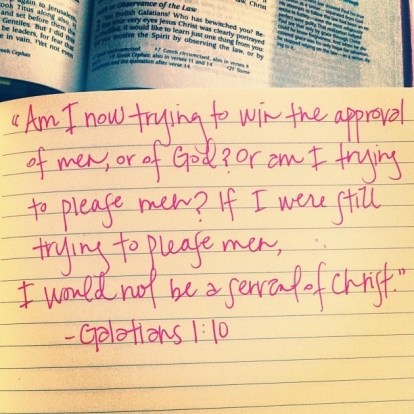 again to Jerusalem,
ook Titus along also.
and set before them
Gentiles. But I did this
be leaders, for fear that
Yet not even
Observance of the Law
foolish Galatians! Who has bewitched you? Be-
your very eyes Jesus Christ was clearly portrayed
I would like to learn just one thing from you:
you receive the Spirit by observing the law, or by
Greek Cephas; also in verses 11 and 14
quotation after verse 14.
"Am I now trying to win the approval
of men, or of God? Or am I trying
to please men? If I were still
trying to please men,
I would not be a servant of Christ."
-Galatians 1:10